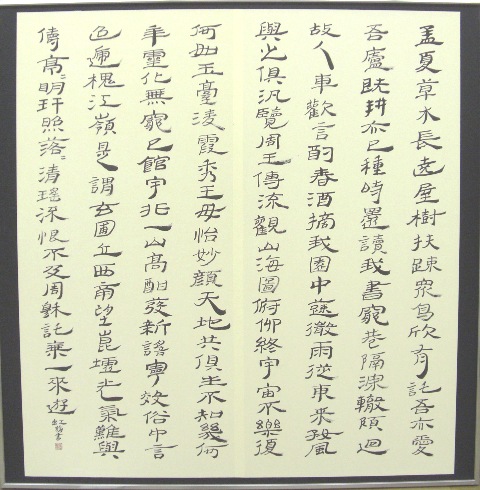 孟夏草木長遶屋樹扶疎衆鳥欣有託吾亦愛
吾廬既耕亦已種時還讀我書窮巷隔深轍頗迴
故人車歡言酌春酒摘我園中蔬微雨從東来好風
與之俱汎覽周王傳流觀山海圖俯仰終宇宙不樂復
何如玉臺凌霞秀王母怡妙顔天地共俱生不知幾何
年靈化無窮已館宇非一山高酣發新謡寧效俗中言
迢遞槐江嶺是謂玄圃丘西南望崑墟光氣難與
儔亭〻明玕照落〻清瑶流恨不及周穆託乗一来遊
書